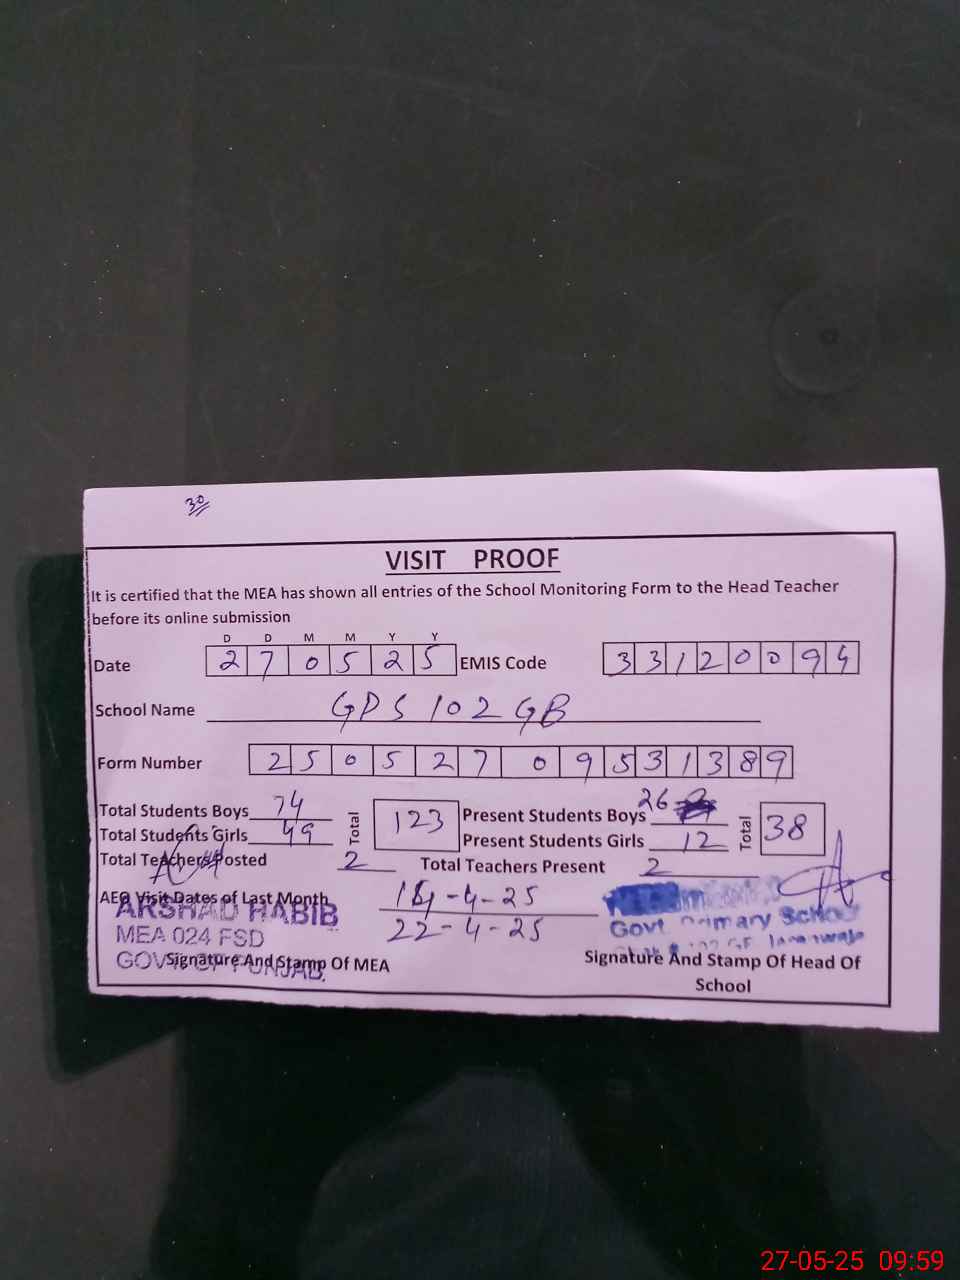 30
VISIT PROOF
It is certified that the MEA has shown all entries of the School Monitoring Form to the Head Teacher
before its online submission
D D M M Y Y
Date 2 7 0 5 2 5 EMIS Code 3 3 1 2 0 0 9 4
School Name GPS 102 GB
Form Number 2 5 0 5 2 7 0 9 5 3 1 3 8 9
Total Students Boys 74 Total 123 Present Students Boys 26 Total 38
Total Students Girls 49 Present Students Girls 12
Total Teachers Posted 2 Total Teachers Present 2
AEO Visit Dates of Last Month -4-25
22-4-25
ARSHAD HABIB
MEA 024 FSD
GOVT. OF PUNJAB.
Govt Primary School
Jaranwala
Signature And Stamp Of MEA
Signature And Stamp Of Head Of
School
27-05-25 09:59